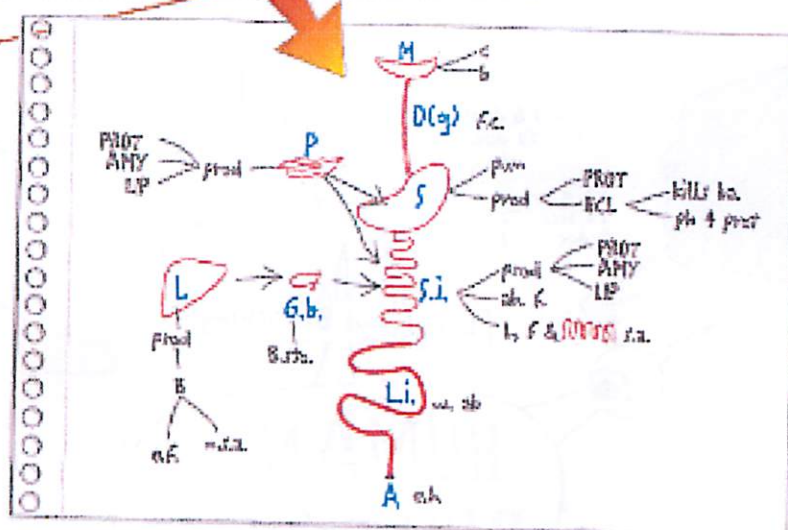 M
c
b
D(g) f.c.
P
PROT
AMY
LIP
prod
S
prod
PROT
HCL
kills ba.
ph 4 prot
L
G.b.
B.sto.
S.i.
prod
PROT
AMY
LIP
ab. f.
L, F & s.a.
prod
B
L.i.
w. ab
A